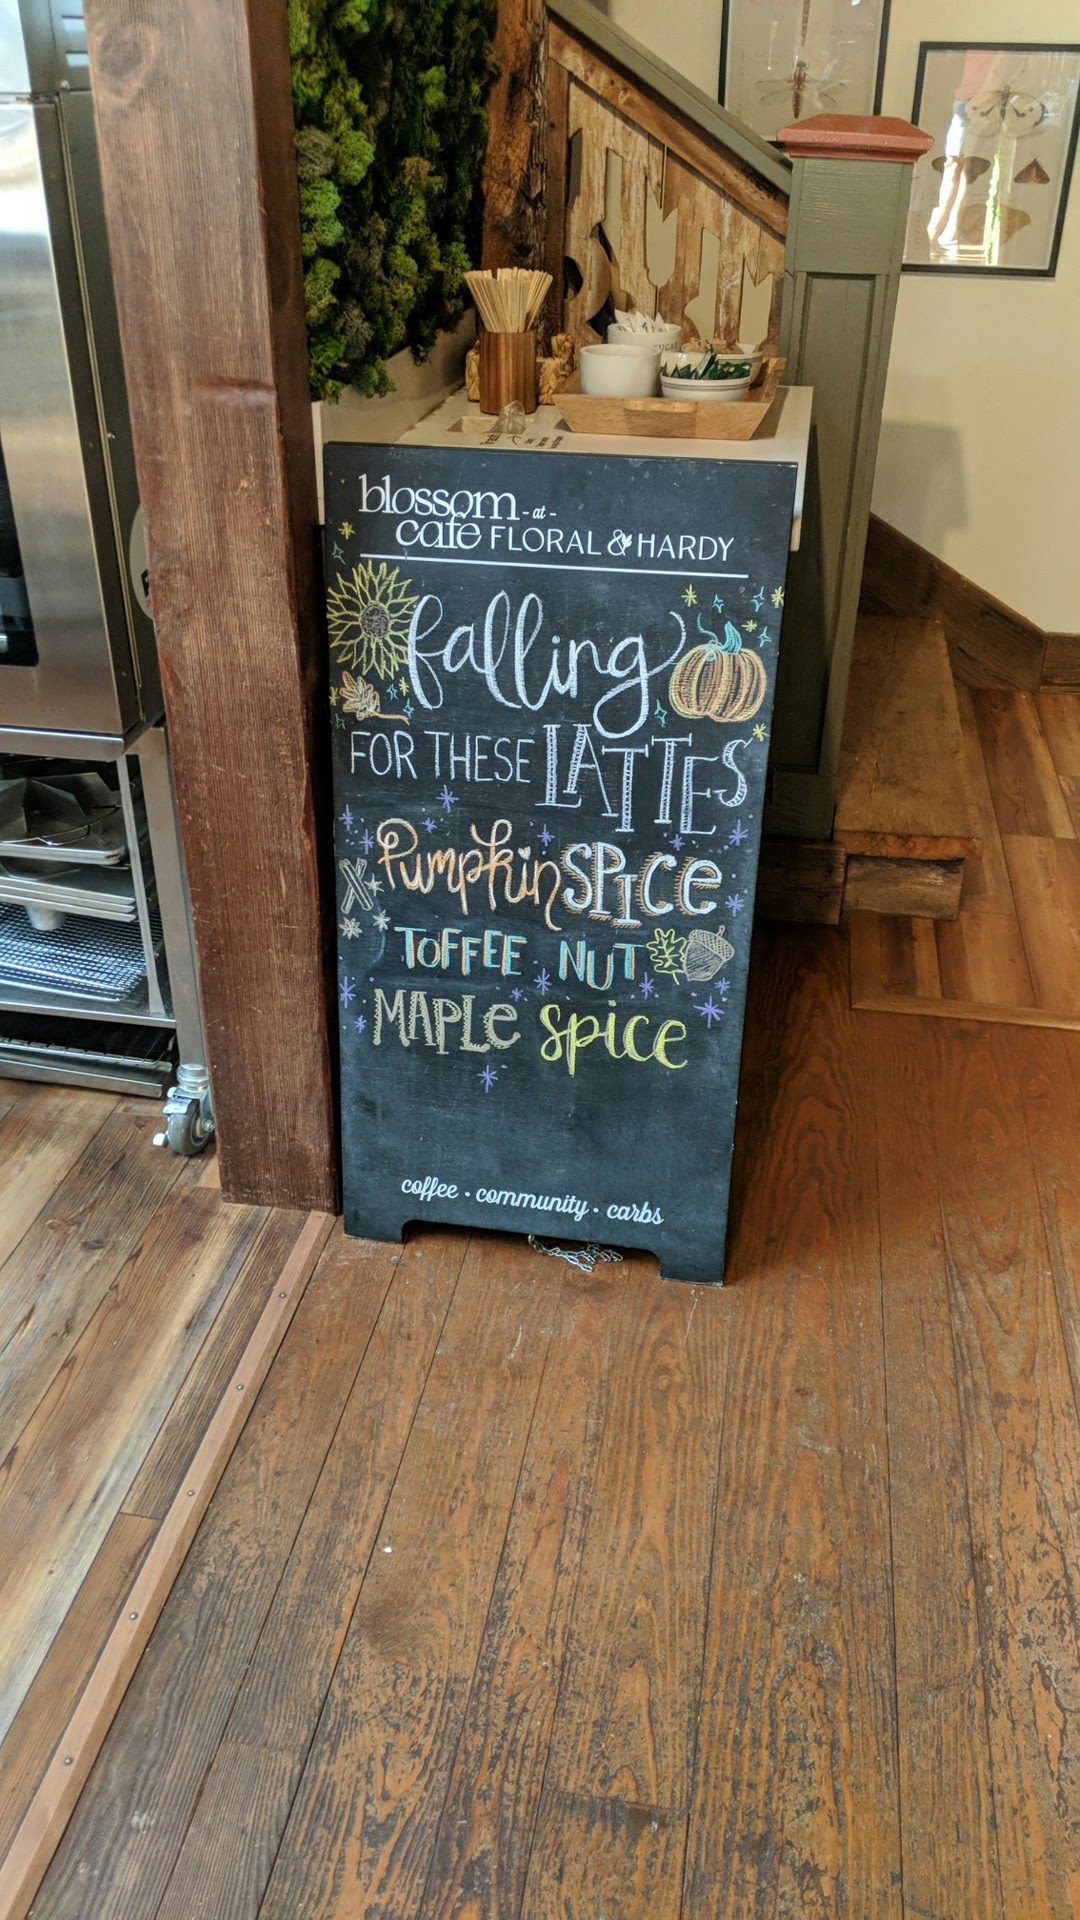 blossom
-at-
café FLORAL & HARDY
falling
FOR THESE LATTES
Pumpkin SPICE
TOFFEE NUT
MAPLE spice
coffee · community · carbs